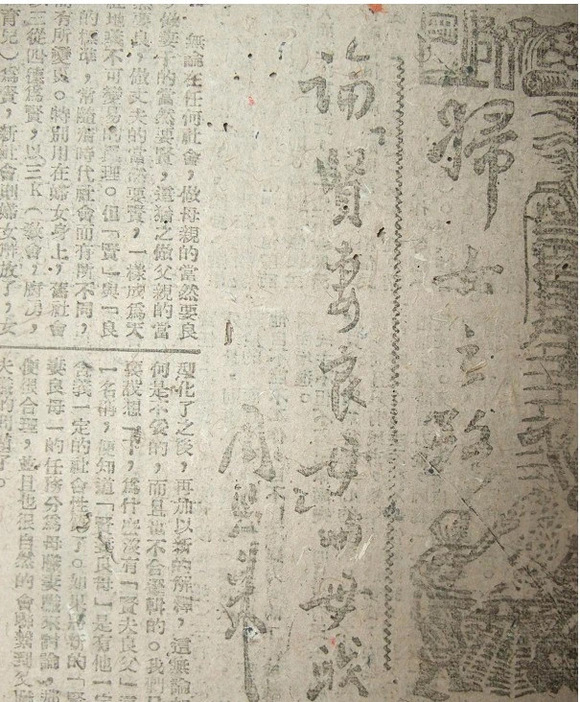 婦女之路
論賢妻良母與母職
周恩來
無論在任何社會,做母親的當然要良
,做妻子的當然要賢,這猶之做父親的當
然要良,做丈夫的當然要賢,一樣成為天
經地義不可變易的真理。但「賢」與「良
」的標準,常隨着時代社會而有所不同,
而有所變更。特別用在婦女身上,舊社會
以三從四德為賢,以三K(教會,廚房,
育兒)為賢,新社會則婦女解放了,女
化了之後,再加以新的解釋,這無論
何是不妥的,而且也不合邏輯的。我們
要設想一下,為什麼沒有「賢夫良父」
一名稱,便知道「賢妻良母」是有他一定
含義一定的社會性質了。如果將新的「賢
妻良母」的任務分為母職妻職來討論,
便很合理,並且也很自然的會聯繫到父職
夫職的問題了。